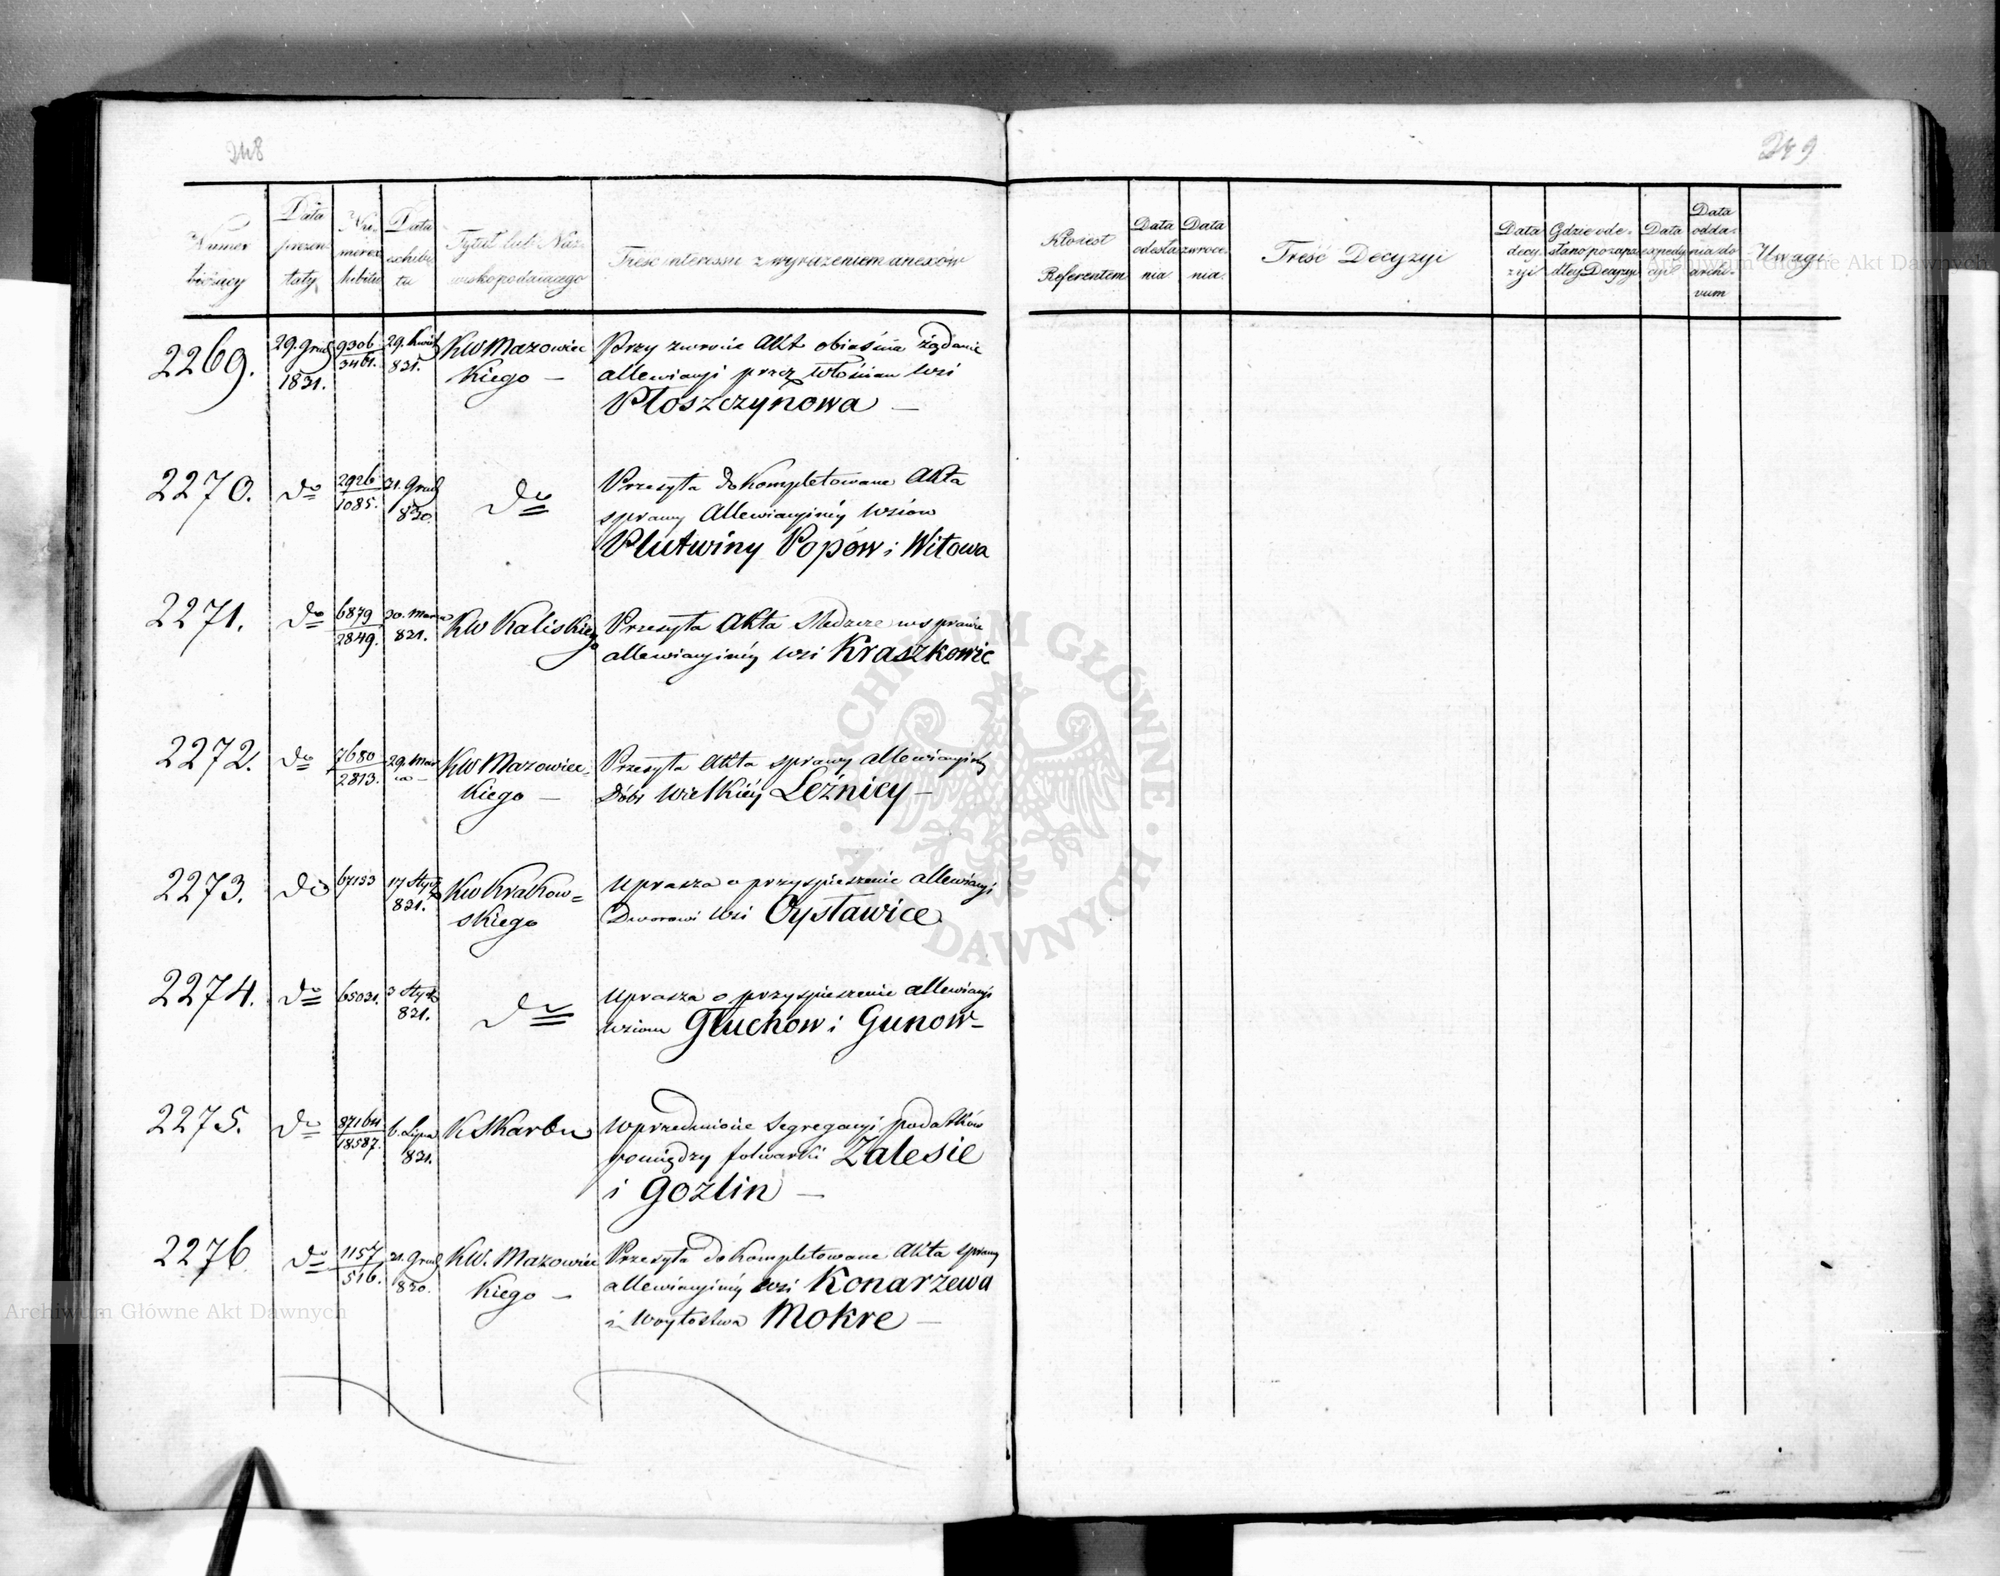 248
Numer bieżący
Data prezentaty
Numer exhibitu
Data exhibitu
Tytuł lub Nazwisko podaiącego
Treść interessu z wyrażeniem anexów
2269. 29. Grud 1831. 9306/3461. 29. Kwiet 831. KW Mazowiec
kiego — Przy zwrocie Akt obiaśnia żądanie
allewiacyi przez Włościan wsi
Płoszczynowa —
2270. do 2926/1085. 31. Grud 830. do Przesyła dokompletowane Akta
sprawy Allewiacyinéy wsiów
Plutwiny Popów i Witowa
2271. do 6879/2849. 30. Marca 831. KW Kaliskiego Przesyła Akta Śledcze w sprawie
allewiacyinéy wsi Kraszkowic
2272. do 7680/2813. 29. Mar
ca — KW Mazowiec-
kiego — Przesyła Akta sprawy allewiacyinéy
Dóbr Wielkiéy Leźnicy —
2273. do 67153 17 Stycz 831. KW Krakow=
skiego Uprasza o przyspieszenie allewiacyi
Dworowi wsi Cysławice
2274. do 65031. 3 Stycz 831. do Uprasza o przyspieszenie allewiacyi
wsiom Głuchow i Gunow —
2275. do 87164/18587. 6. Lipca 831. K Skarbu W przedmiocie Segregacyi podatków
pomiędzy folwarki Zalesie
i Gozlin —
2276 do 1157/516. 21. Grud 830. KW. Mazowiec
kiego — Przesyła dokompletowane Akta sprawy
allewiacyinéy wsi Konarzewa
i Woytostwa Mokre —
249
Kto iest Referentem
Data odesłania
Data zwrocenia.
Treść Decyzyi
Data decyzyi
Gdzie odesłano po zapadłey Decyzyi
Data expedycyi
Data oddania do archivum
Uwagi.
ARCHIWUM GŁÓWNE
AKT DAWNYCH
Archiwum Główne Akt Dawnych
Archiwum Główne Akt Dawnych